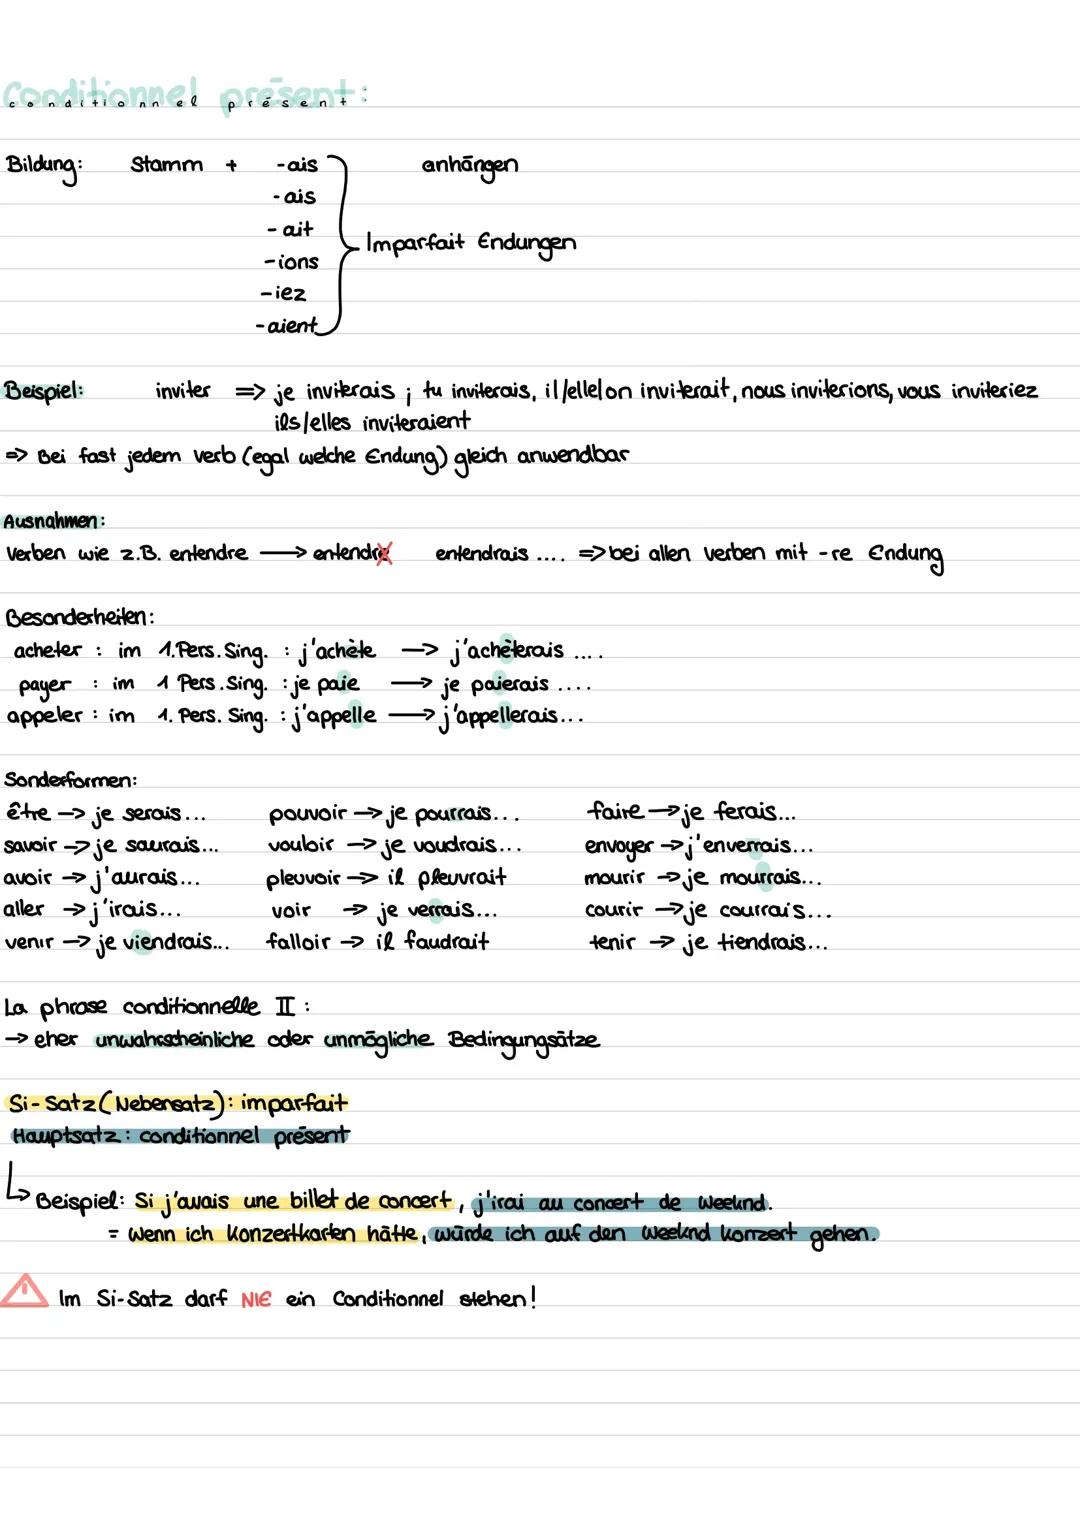 Conditionnel présent:
conditionnel présent
Bildung: Stamm + -ais anhängen
-ais
-ait
Imparfait Endungen
-ions
-iez
-aient
Beispiel: inviter => je inviterais ; tu inviterais, il/elle/on inviterait, nous inviterions, vous inviteriez
ils/elles inviteraient
=> Bei fast jedem verb (egal welche Endung) gleich anwendbar
Ausnahmen:
Verben wie z.B. entendre → entendre entendrais .... => bei allen verben mit -re Endung
Besonderheiten:
acheter : im 1.Pers. Sing. : j'achète → j'achèterais ....
payer : im 1 Pers. Sing. : je paie → je paierais ....
appeler : im 1. Pers. Sing. : j'appelle → j'appellerais...
Sonderformen:
être → je serais... pouvoir → je pourrais... faire → je ferais...
savoir → je saurais... vouloir → je voudrais... envoyer → j'enverrais...
avoir → j'aurais... pleuvoir → il pleuvrait mourir → je mourrais...
aller → j'irais... voir → je verrais... courir → je courrais...
venir → je viendrais... falloir → il faudrait tenir → je tiendrais...
La phrase conditionnelle II :
→ eher unwahrscheinliche oder unmögliche Bedingungsätze
Si-Satz (Nebensatz): imparfait
Hauptsatz: conditionnel présent
Beispiel: Si j'avais une billet de concert, j'irai au concert de Weeknd.
= Wenn ich Konzertkarten hätte, würde ich auf den Weeknd konzert gehen.
! Im Si-Satz darf NIE ein Conditionnel stehen!